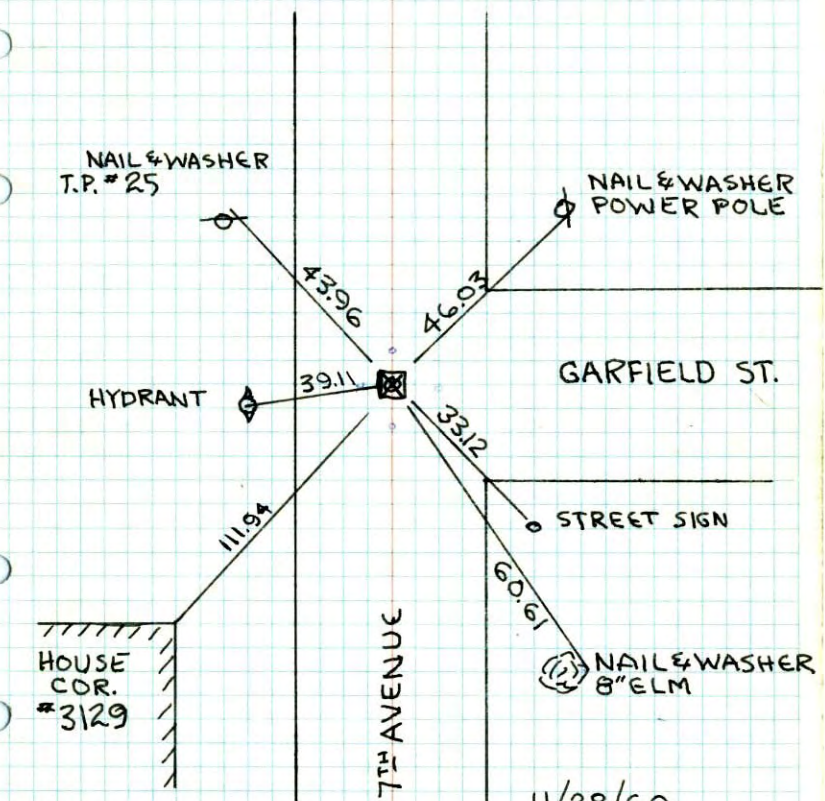 NAIL & WASHER
T.P. #25
NAIL & WASHER
POWER POLE
43.96
46.03
HYDRANT
39.11
GARFIELD ST.
33.12
STREET SIGN
111.94
60.61
HOUSE
COR.
#3129
7TH AVENUE
NAIL & WASHER
8" ELM